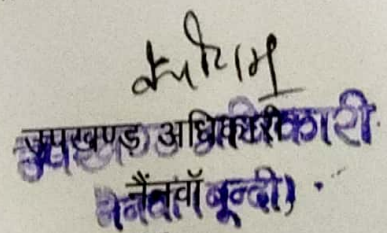 उपखण्ड अधिकारी
नैंनवॉ बून्दी)